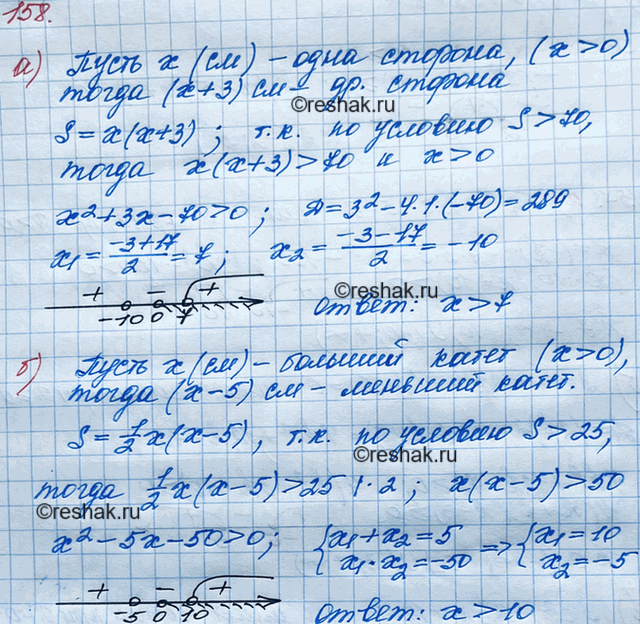 158.
а) Пусть x (см) – одна сторона, (x>0)
тогда (x+3) см – др. сторона
©reshak.ru
S=x(x+3) ; т.к. по условию S>70,
тогда x(x+3)>70 и x>0
x²+3x-70>0; D=3²-4·1·(-70)=289
x₁=(-3+17)/2=7; x₂=(-3-17)/2=-10
+ - +
-10 0 7
©reshak.ru
ответ: x>7
б) Пусть x (см) – больший катет (x>0),
тогда (x-5) см – меньший катет.
S=1/2x(x-5), т.к. по условию S>25,
©reshak.ru
тогда 1/2x(x-5)>25 |·2 ; x(x-5)>50
©reshak.ru
x²-5x-50>0; {x₁+x₂=5 => {x₁=10
x₁·x₂=-50 x₂=-5
+ - +
-5 0 10
ответ: x>10